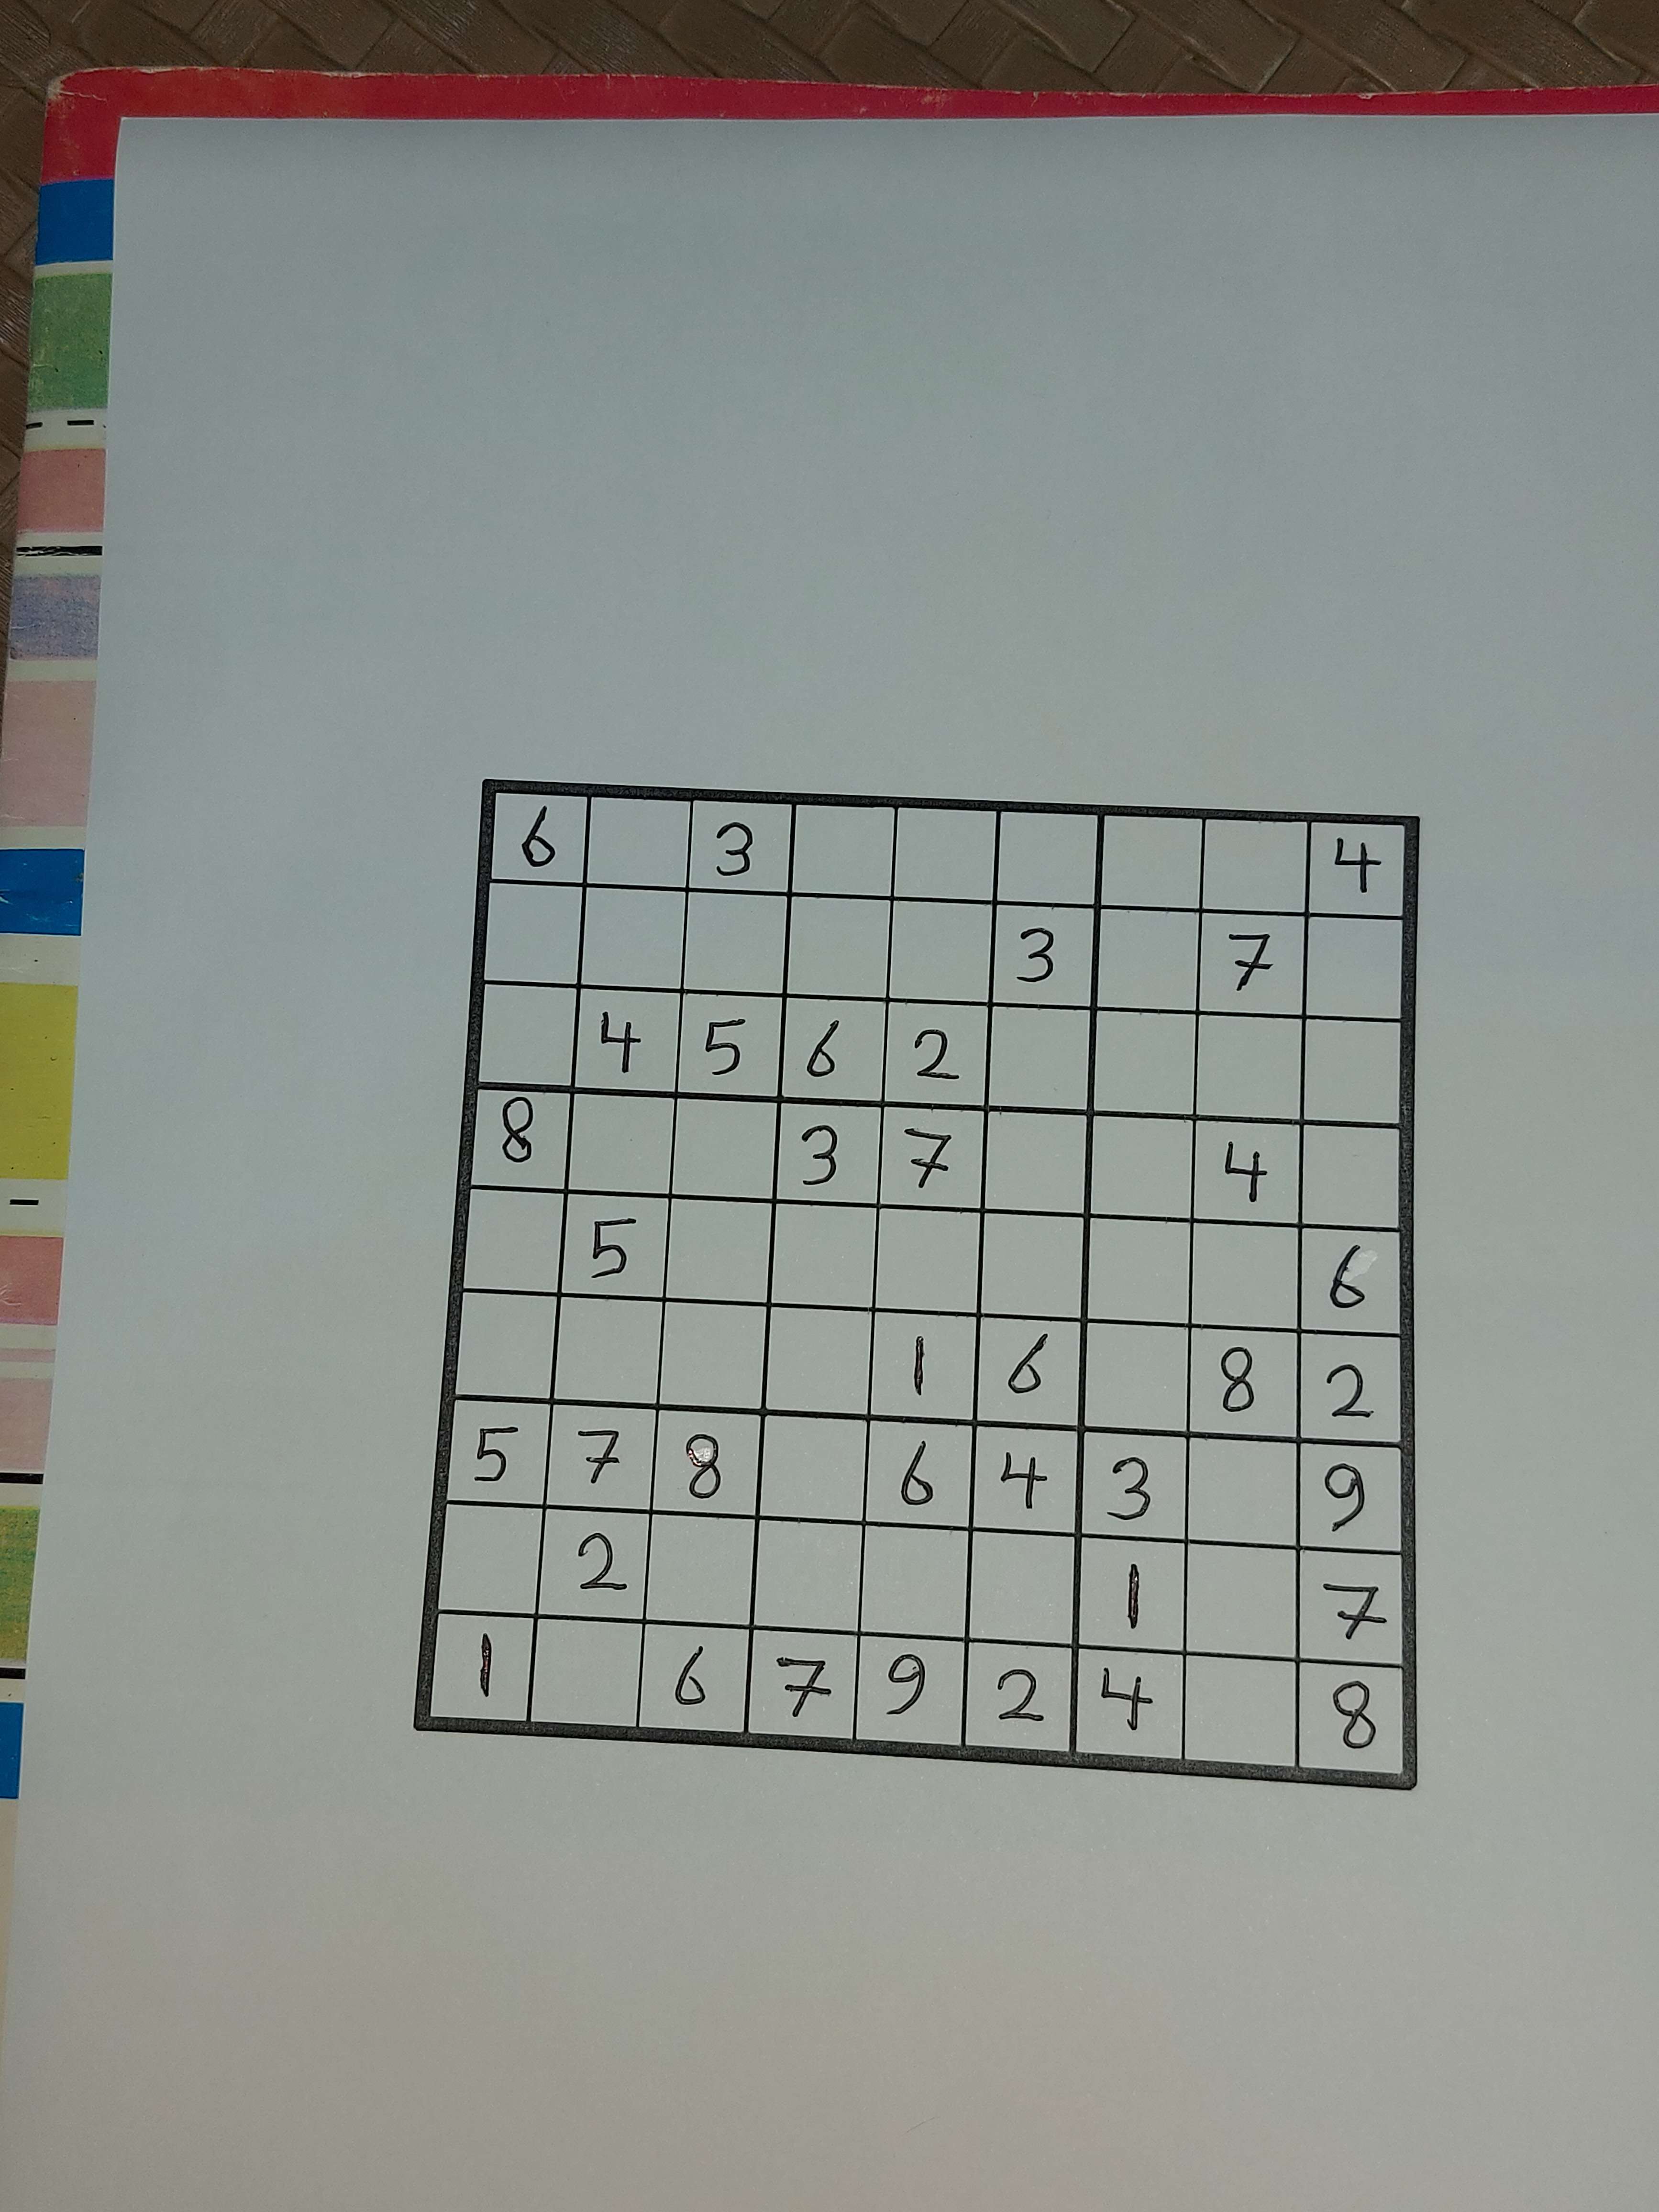 6 3 4
3 7
4 5 6 2
8 3 7 4
5 6
1 6 8 2
5 7 8 6 4 3 9
2 1 7
1 6 7 9 2 4 8